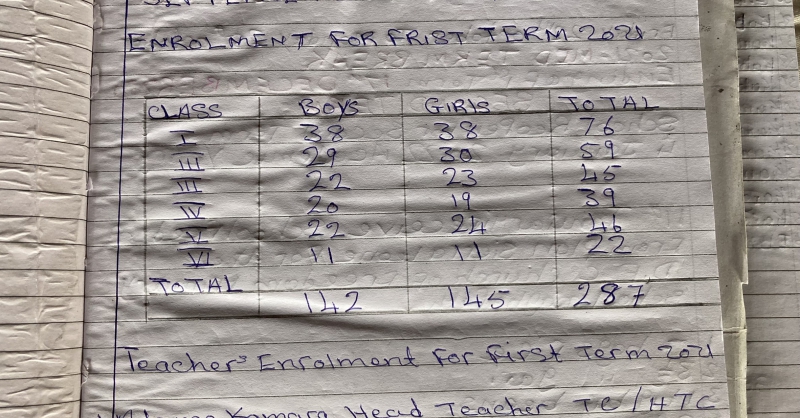 ENROLMENT FOR FRIST TERM 2021
CLASS BOYS GIRLS TOTAL
I 38 38 76
III 29 30 59
III 22 23 45
IV 20 19 39
V 22 24 46
VI 11 11 22
TOTAL
142 145 287
Teachers Enrolment For First Term 2021
Kamara Head Teacher TC/HTC